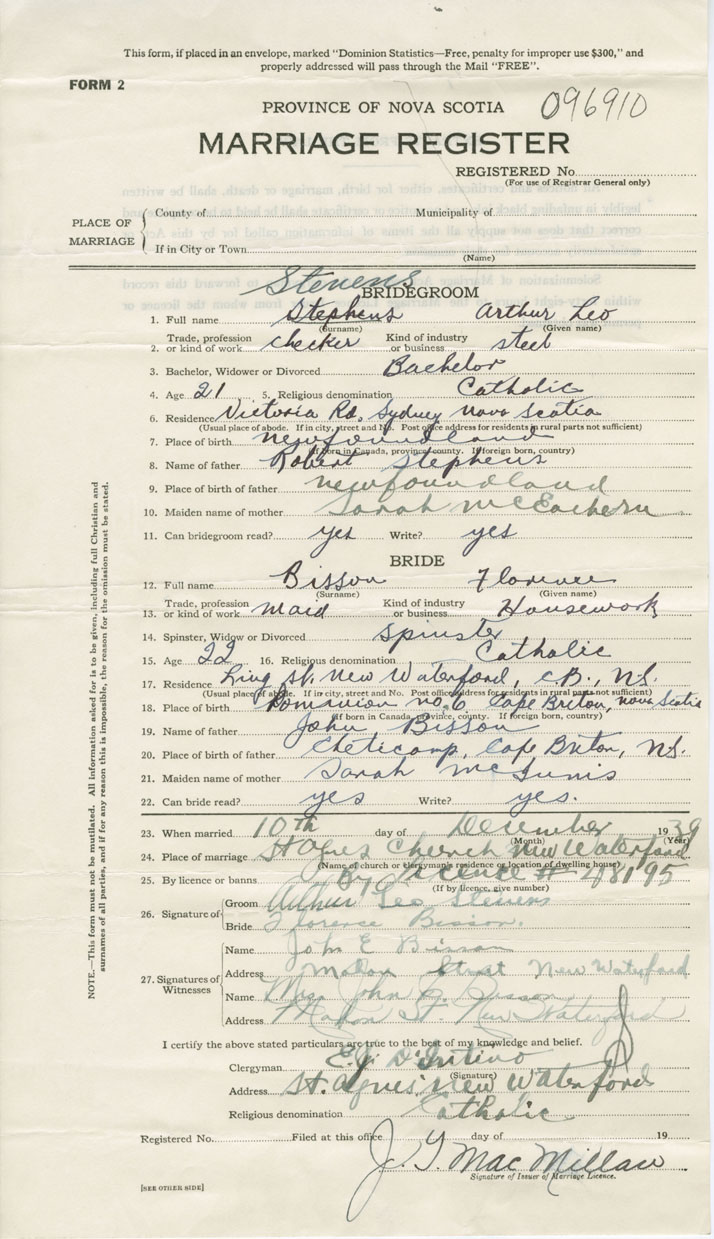 This form, if placed in an envelope, marked "Dominion Statistics—Free, penalty for improper use $300," and
properly addressed will pass through the Mail "FREE".
FORM 2
PROVINCE OF NOVA SCOTIA 096910
MARRIAGE REGISTER
REGISTERED No.
(For use of Registrar General only)
PLACE OF MARRIAGE
County of Municipality of
If in City or Town
(Name)
Stevens
BRIDEGROOM
1. Full name Stephens Arthur Leo
(Surname) (Given name)
2. Trade, profession or kind of work checker Kind of industry or business steel
3. Bachelor, Widower or Divorced Bachelor
4. Age 21 5. Religious denomination Catholic
6. Residence Victoria Rd. Sydney Nova Scotia
(Usual place of abode. If in city, street and No. Post office address for residents in rural parts not sufficient)
7. Place of birth Newfoundland
(If born in Canada, province, county. If foreign born, country)
8. Name of father Robert Stephens
9. Place of birth of father Newfoundland
10. Maiden name of mother Sarah McEachern
11. Can bridegroom read? yes Write? yes
BRIDE
12. Full name Bisson Florence
(Surname) (Given name)
13. Trade, profession or kind of work maid Kind of industry or business Housework
14. Spinster, Widow or Divorced Spinster
15. Age 22 16. Religious denomination Catholic
17. Residence Ling St. New Waterford, C.B., N.S.
(Usual place of abode. If in city, street and No. Post office address for residents in rural parts not sufficient)
18. Place of birth Dominion No. 6 Cape Breton, Nova Scotia
(If born in Canada, province, county. If foreign born, country)
19. Name of father John Bisson
20. Place of birth of father Cheticamp, Cape Briton, N.S.
21. Maiden name of mother Sarah McInnis
22. Can bride read? yes Write? yes.
23. When married 10th day of December 1939
(Month) (Year)
24. Place of marriage St Agnes Church New Waterford
(Name of church or clergyman's residence or location of dwelling house)
25. By licence or banns By Licence # 48195
(If by licence, give number)
26. Signature of
Groom Arthur Leo Stevens
Bride Florence Bisson.
27. Signatures of Witnesses
Name John E Bisson
Address Mahon Street New Waterford
Name Mrs. John E. Bisson
Address Mahon St. New Waterford
I certify the above stated particulars are true to the best of my knowledge and belief.
Clergyman E.J. D'Intino
(Signature)
Address St. Agnes' New Waterford
Religious denomination Catholic
Registered No. Filed at this office day of 19
J. G. MacMillan
Signature of Issuer of Marriage Licence.
[SEE OTHER SIDE]
NOTE.—This form must not be mutilated. All information asked for is to be given, including full Christian and
surnames of all parties, and if for any reason this is impossible, the reason for the omission must be stated.